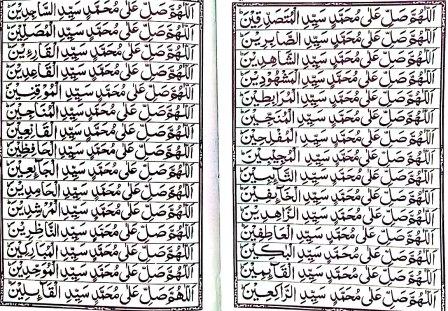 اَللّٰهُمَّ صَلِّ عَلٰى مُحَمَّدٍ سَيِّدِ الْمُتَصَدِّقِيْنَ
اَللّٰهُمَّ صَلِّ عَلٰى مُحَمَّدٍ سَيِّدِ الصَّابِرِيْنَ
اَللّٰهُمَّ صَلِّ عَلٰى مُحَمَّدٍ سَيِّدِ الشَّاهِدِيْنَ
اَللّٰهُمَّ صَلِّ عَلٰى مُحَمَّدٍ سَيِّدِ الْمَشْهُوْدِيْنَ
اَللّٰهُمَّ صَلِّ عَلٰى مُحَمَّدٍ سَيِّدِ الْمُرَابِطِيْنَ
اَللّٰهُمَّ صَلِّ عَلٰى مُحَمَّدٍ سَيِّدِ
اَللّٰهُمَّ صَلِّ عَلٰى مُحَمَّدٍ سَيِّدِ الْمُفْلِحِيْنَ
اَللّٰهُمَّ صَلِّ عَلٰى مُحَمَّدٍ سَيِّدِ
اَللّٰهُمَّ صَلِّ عَلٰى مُحَمَّدٍ سَيِّدِ التَّائِبِيْنَ
اَللّٰهُمَّ صَلِّ عَلٰى مُحَمَّدٍ سَيِّدِ الْخَائِفِيْنَ
اَللّٰهُمَّ صَلِّ عَلٰى مُحَمَّدٍ سَيِّدِ الزَّاهِدِيْنَ
اَللّٰهُمَّ صَلِّ عَلٰى مُحَمَّدٍ سَيِّدِ الْعَاطِفِيْنَ
اَللّٰهُمَّ صَلِّ عَلٰى مُحَمَّدٍ سَيِّدِ الْبَاكِيْنَ
اَللّٰهُمَّ صَلِّ عَلٰى مُحَمَّدٍ سَيِّدِ الْقَائِمِيْنَ
اَللّٰهُمَّ صَلِّ عَلٰى مُحَمَّدٍ سَيِّدِ الرَّاكِعِيْنَ
اَللّٰهُمَّ صَلِّ عَلٰى مُحَمَّدٍ سَيِّدِ السَّاجِدِيْنَ
اَللّٰهُمَّ صَلِّ عَلٰى مُحَمَّدٍ سَيِّدِ الْمُصَلِّيْنَ
اَللّٰهُمَّ صَلِّ عَلٰى مُحَمَّدٍ سَيِّدِ الْقَارِئِيْنَ
اَللّٰهُمَّ صَلِّ عَلٰى مُحَمَّدٍ سَيِّدِ الْقَاعِدِيْنَ
اَللّٰهُمَّ صَلِّ عَلٰى مُحَمَّدٍ سَيِّدِ الْمُوْقِنِيْنَ
اَللّٰهُمَّ صَلِّ عَلٰى مُحَمَّدٍ سَيِّدِ الْمُنَاجِيْنَ
اَللّٰهُمَّ صَلِّ عَلٰى مُحَمَّدٍ سَيِّدِ الْقَانِعِيْنَ
اَللّٰهُمَّ صَلِّ عَلٰى مُحَمَّدٍ سَيِّدِ الْحَافِظِيْنَ
اَللّٰهُمَّ صَلِّ عَلٰى مُحَمَّدٍ سَيِّدِ الْجَائِعِيْنَ
اَللّٰهُمَّ صَلِّ عَلٰى مُحَمَّدٍ سَيِّدِ الْحَامِدِيْنَ
اَللّٰهُمَّ صَلِّ عَلٰى مُحَمَّدٍ سَيِّدِ الْمُرْشِدِيْنَ
اَللّٰهُمَّ صَلِّ عَلٰى مُحَمَّدٍ سَيِّدِ النَّاظِرِيْنَ
اَللّٰهُمَّ صَلِّ عَلٰى مُحَمَّدٍ سَيِّدِ الْمُبَارَكِيْنَ
اَللّٰهُمَّ صَلِّ عَلٰى مُحَمَّدٍ سَيِّدِ الْمُوَحِّدِيْنَ
اَللّٰهُمَّ صَلِّ عَلٰى مُحَمَّدٍ سَيِّدِ الْقَائِلِيْنَ